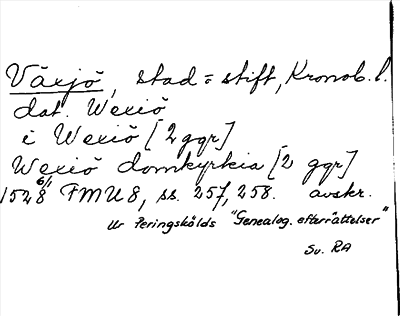 Växjö, stad o stift, Kronob. l.
dat. Wexiö
i Wexiö [2 ggr]
Wexiö domkyrkia [2 ggr]
1528 6/1 FMU 8, ss. 257, 258. avskr.
Ur Peringskölds "Genealog. efterrättelser"
Sv. RA